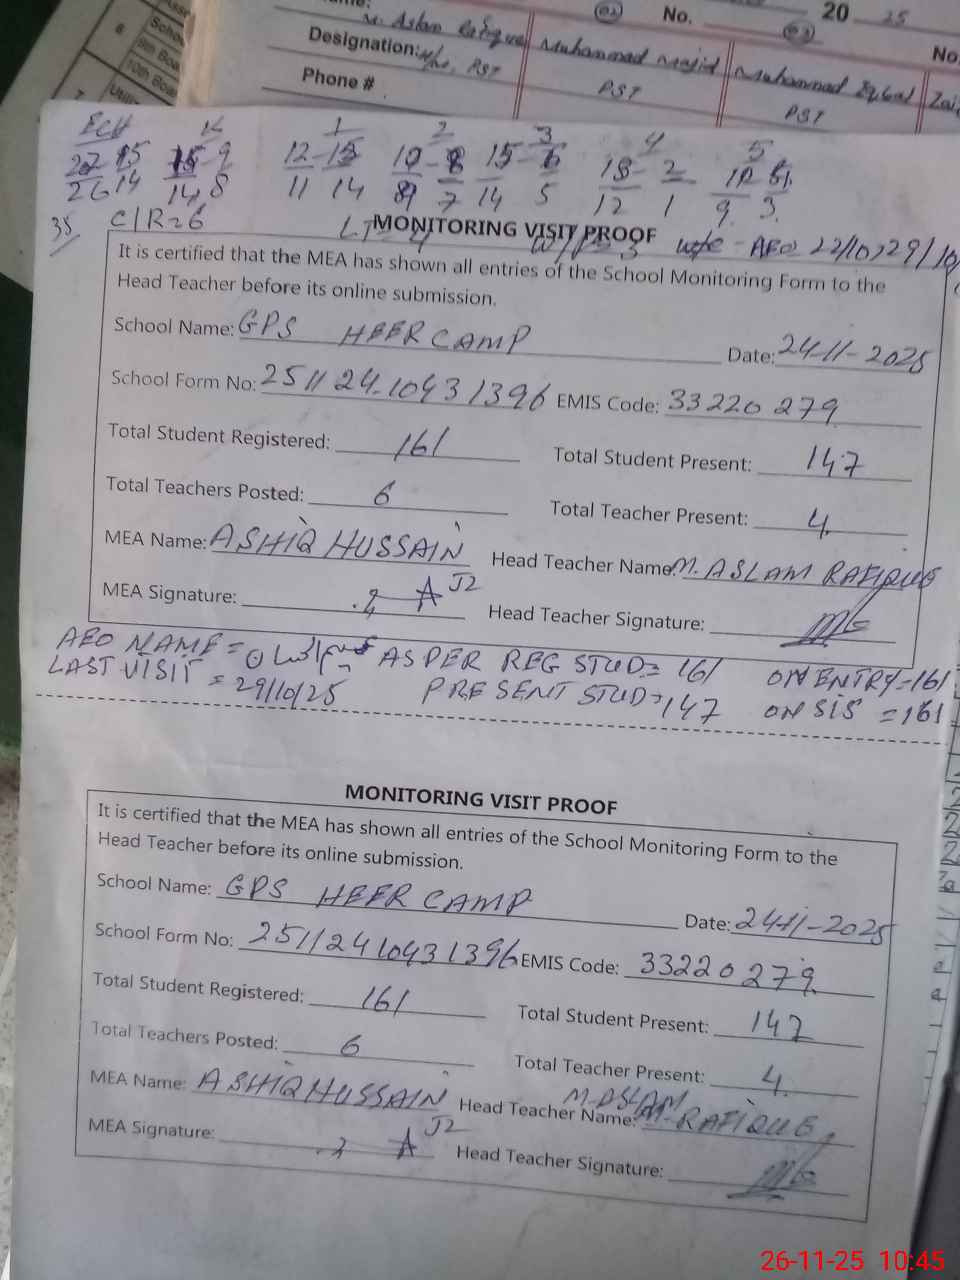 No. 20 25
M. Aslam Rafique Muhammad Majid Muhammad Iqbal
Designation: PST PST PST
Phone #
No.
School
9th Boa
10th Boa
ECE K 1 2 3 4 5
12 10 15 18
26 14 14 8 11 14 7 14 5 12 1 9 3
35 C/R=6
MONITORING VISIT PROOF
AEO 22/10, 29/10
It is certified that the MEA has shown all entries of the School Monitoring Form to the
Head Teacher before its online submission.
School Name: GPS HEER CAMP Date: 24-11-2025
School Form No: 251124-10431396 EMIS Code: 33220279
Total Student Registered: 161 Total Student Present: 147
Total Teachers Posted: 6 Total Teacher Present: 4
MEA Name: ASHIQ HUSSAIN Head Teacher Name M. ASLAM RAFIQUE
MEA Signature: Head Teacher Signature:
AEO NAME= AS PER REG STUD= 161 ON ENTRY=161
LAST VISIT = 29/10/25 PRESENT STUD=147 ON SIS =161
MONITORING VISIT PROOF
It is certified that the MEA has shown all entries of the School Monitoring Form to the
Head Teacher before its online submission.
School Name: GPS HEER CAMP Date: 24-11-2025
School Form No: 25112410431396 EMIS Code: 33220279
Total Student Registered: 161 Total Student Present: 147
Total Teachers Posted: 6 Total Teacher Present: 4
MEA Name: ASHIQ HUSSAIN Head Teacher Name: M. ASLAM RAFIQUE
MEA Signature: Head Teacher Signature:
26-11-25 10:45